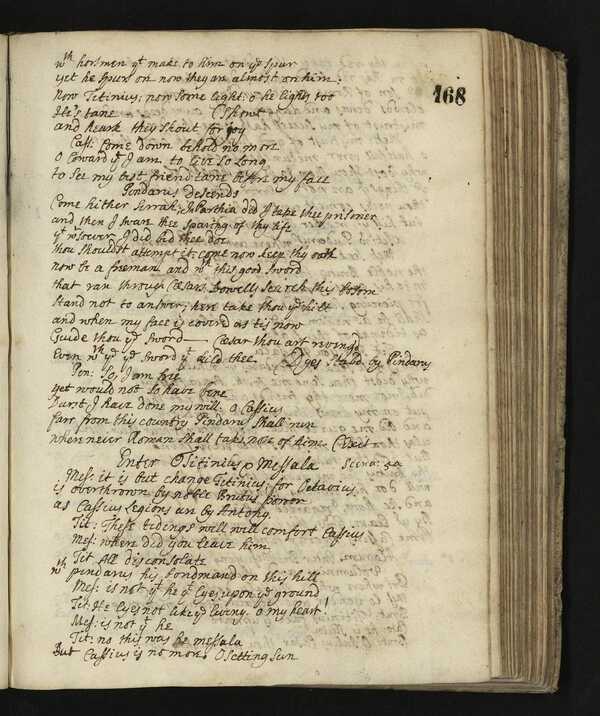 wth horsmen yt make to him on ye spur
yet he spurs on now they are almost on him:
Now Titinius; now some light: o he lights too
He's tane (Showt
168
and heark they shout for joy
Cass: Come down behold no more
O Coward yt I am to live so long
to see my best friend tane before my face
Pindarus descends
Come hither Sirrah; In Parthia did I take thee prisoner
and then I sware thee saveing of thy life
yt wtsoever I did bid thee doe
thou shouldst attempt it: come now keep thy oath
now be a freeman and wth this good sword
that ran through Cæsars bowells search this bosom
Stand not to answer; here take thou ye hilt
and when my face is coverd as tis now
Guide thou ye sword — Cæsar thou art reveng'd
Even wth ye sword yt kild thee. (Dyes Stab'd by Pindarus
Pin: So, I am free
yet would not so have bene
Durst I have done my will: o Cassius
farr from this country Pindarus shall run
where never Roman shall take note of him. (Exit
Enter Titinius & Messala Scena: 5a
Mes: it is but change Titinius; for Octavius
is overthrown by noble Brutus power
as Cassius Legions are by Antony.
Tit: These tideings will well comfort Cassius
Mes: where did you leave him
Tit All disconsolate
wth pindarus his bondmand on this hill
Mes: is not yt he yt lyes upon ye ground
Tit: He lyes not like ye liveing o my heart!
Mes: is not yt he
Tit: no this was he messala
But Cassius is no more. O setting sun